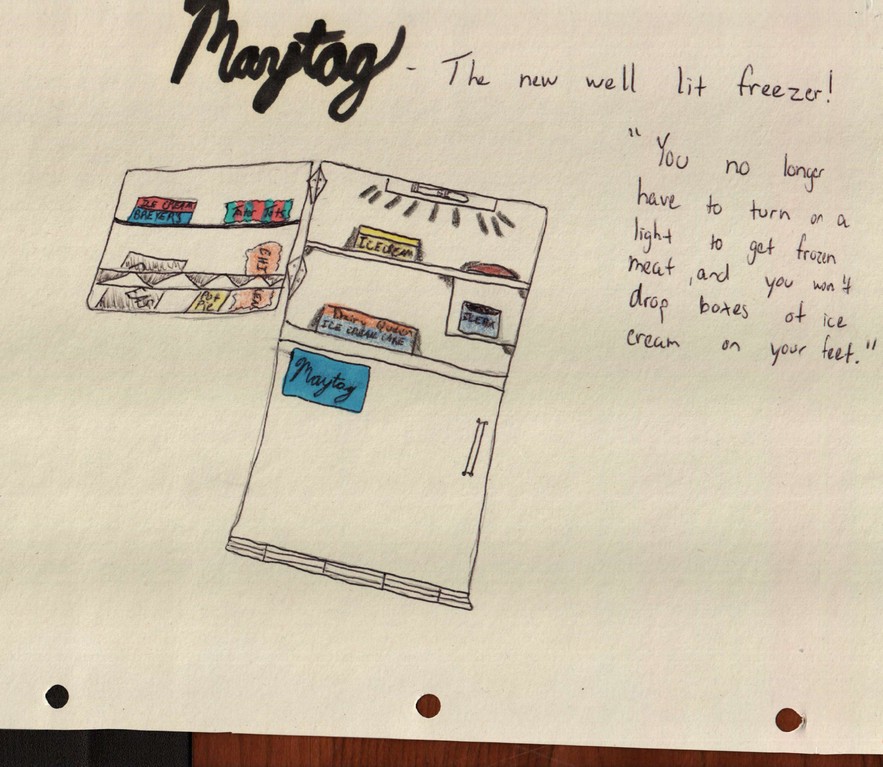 Maytag - The new well lit freezer!
"You no longer
have to turn on a
light to get frozen
meat, and you won't
drop boxes of ice
cream on your feet."
ICE CREAM
BREYERS
Tater Tots
ICECREAM
Pot
Pie
Dairy Queen
ICE CREAM CAKE
Maytag